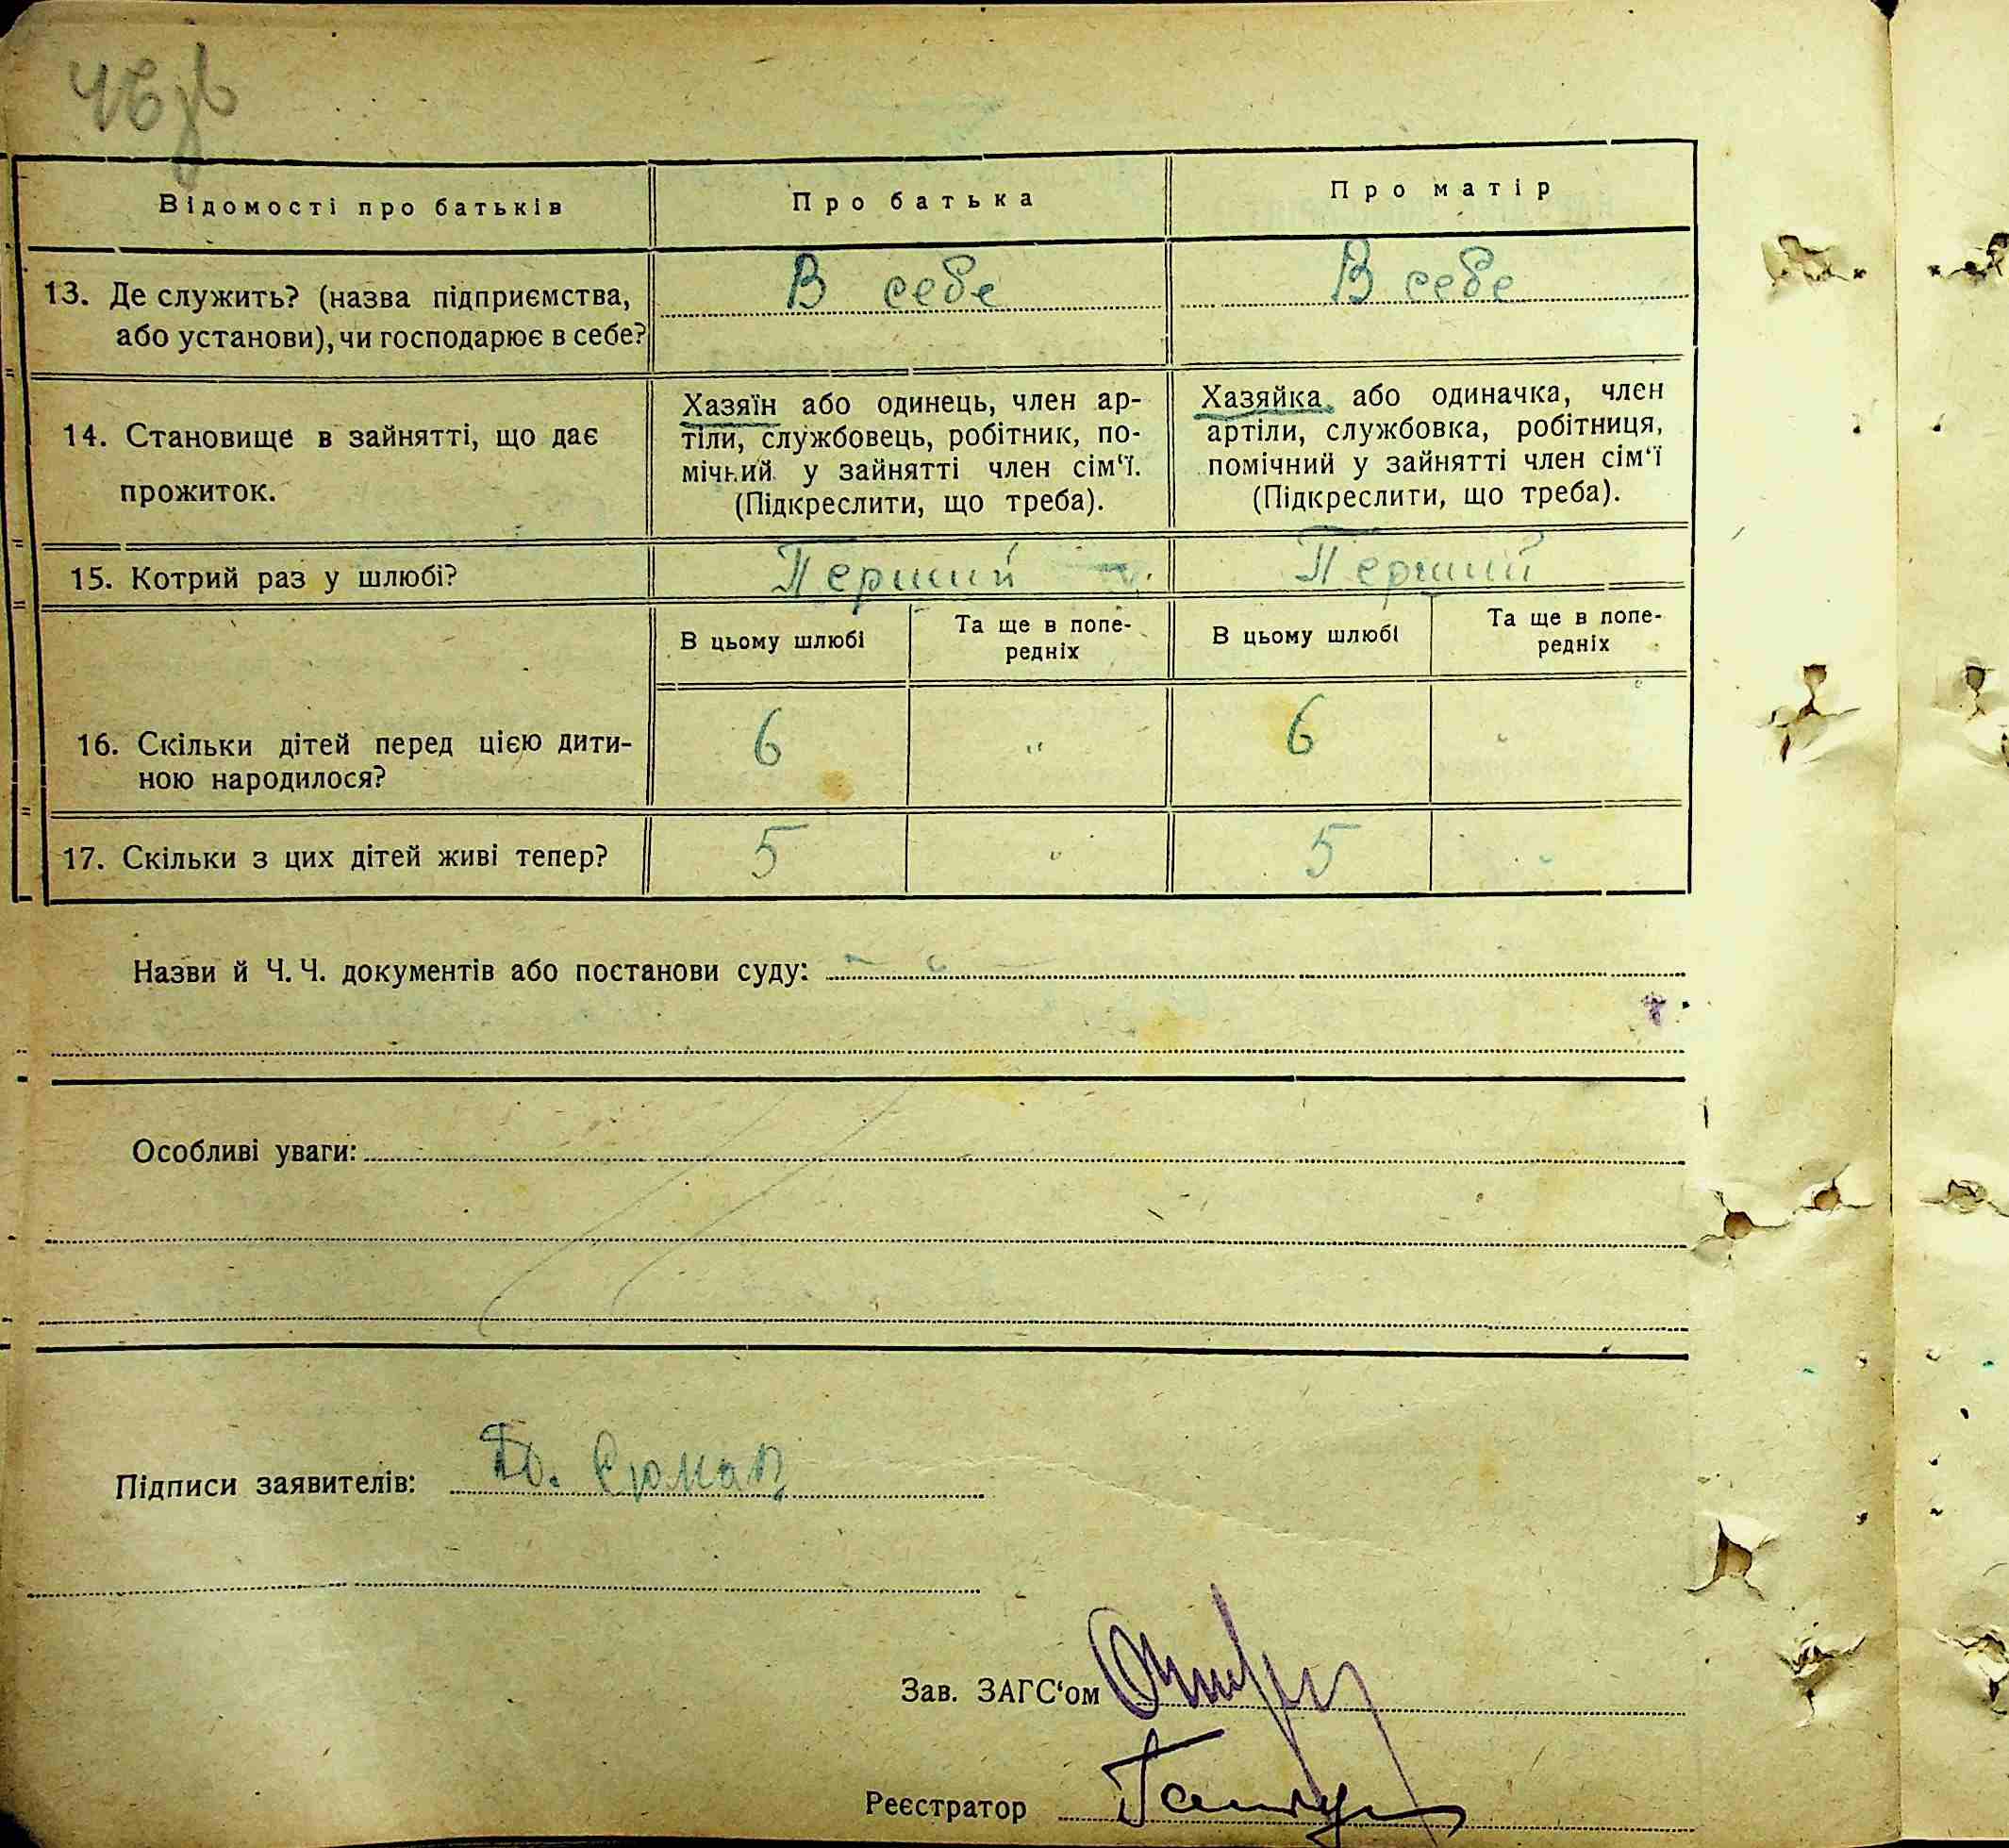 46зв
Відомості про батьків
Про батька
Про матір
13. Де служить? (назва підприємства,
або установи), чи господарює в себе?
В себе
В себе
14. Становище в зайнятті, що дає
прожиток.
Хазяїн або одинець, член ар-
тіли, службовець, робітник, по-
мічний у зайнятті член сім‘ї.
(Підкреслити, що треба).
Хазяйка або одиначка, член
артіли, службовка, робітниця,
помічний у зайнятті член сім‘ї
(Підкреслити, що треба).
15. Котрий раз у шлюбі?
Перший
Перший
В цьому шлюбі
Та ще в попе-
редніх
В цьому шлюбі
Та ще в попе-
редніх
16. Скільки дітей перед цією дити-
ною народилося?
6
"
6
17. Скільки з цих дітей живі тепер?
5
5
Назви й Ч. Ч. документів або постанови суду:
Особливі уваги:
Підписи заявителів:
Зав. ЗАГС‘ом
Реєстратор